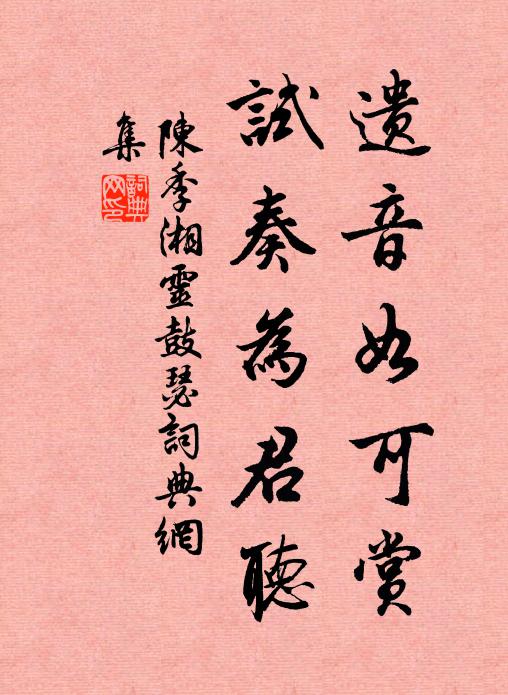 遺音如可賞
試奏為君聽
陳季湘靈鼓瑟詞典網
集
詞典
网印